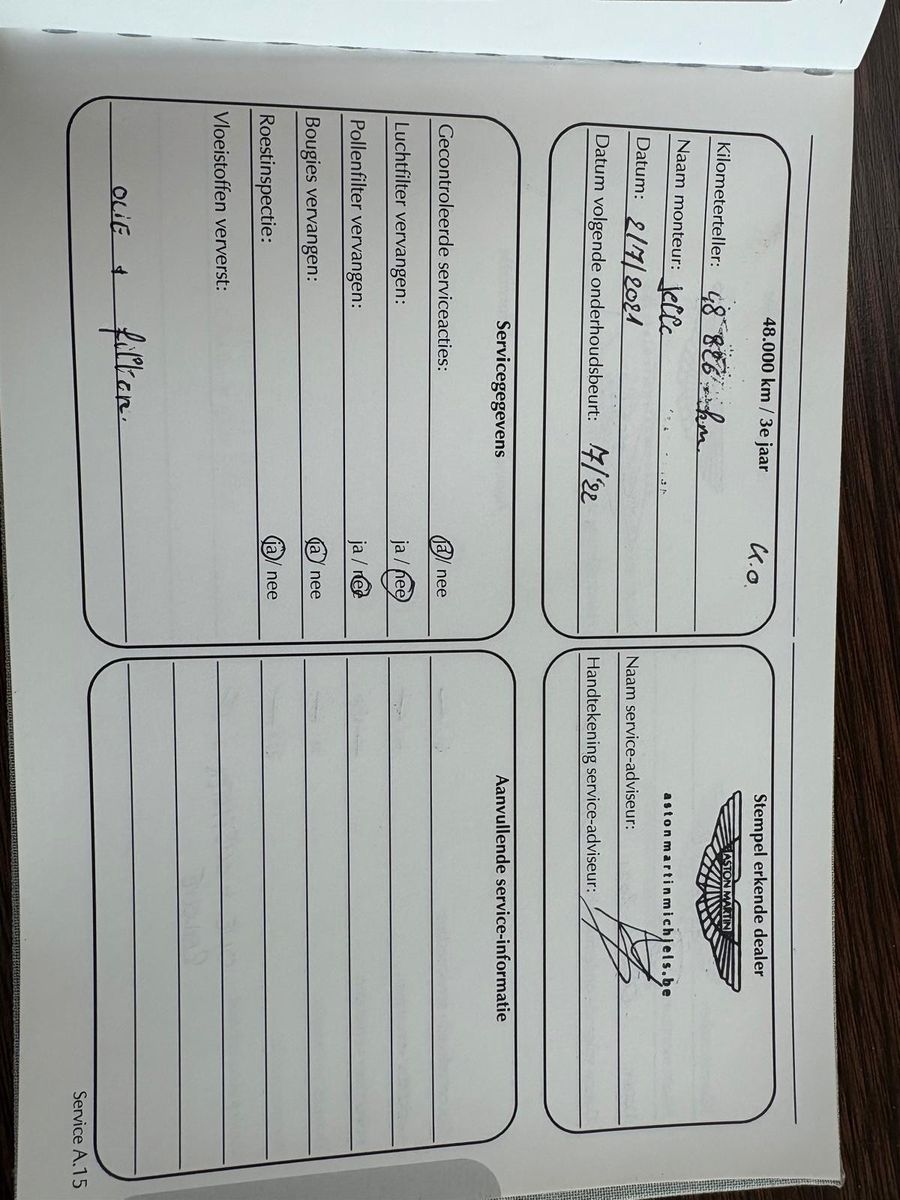 48.000 km / 3e jaar
K.O.
Kilometerteller: 48 826 km
Naam monteur: Jelle
Datum: 2/7/2021
Datum volgende onderhoudsbeurt: 7/'22
Stempel erkende dealer
ASTON MARTIN
astonmartinmichiels.be
Naam service-adviseur:
Handtekening service-adviseur:
Servicegegevens
Gecontroleerde serviceacties: ja / nee
Luchtfilter vervangen: ja / nee
Pollenfilter vervangen: ja / nee
Bougies vervangen: ja / nee
Roestinspectie: ja / nee
Vloeistoffen ververst:
OLIE + filter.
Aanvullende service-informatie
Service A.15